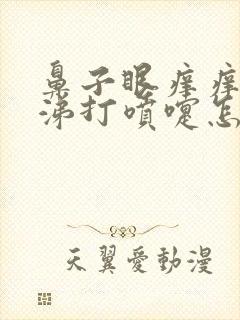 鼻子眼痒痒
涕打喷嚏怎
天翼愛動漫